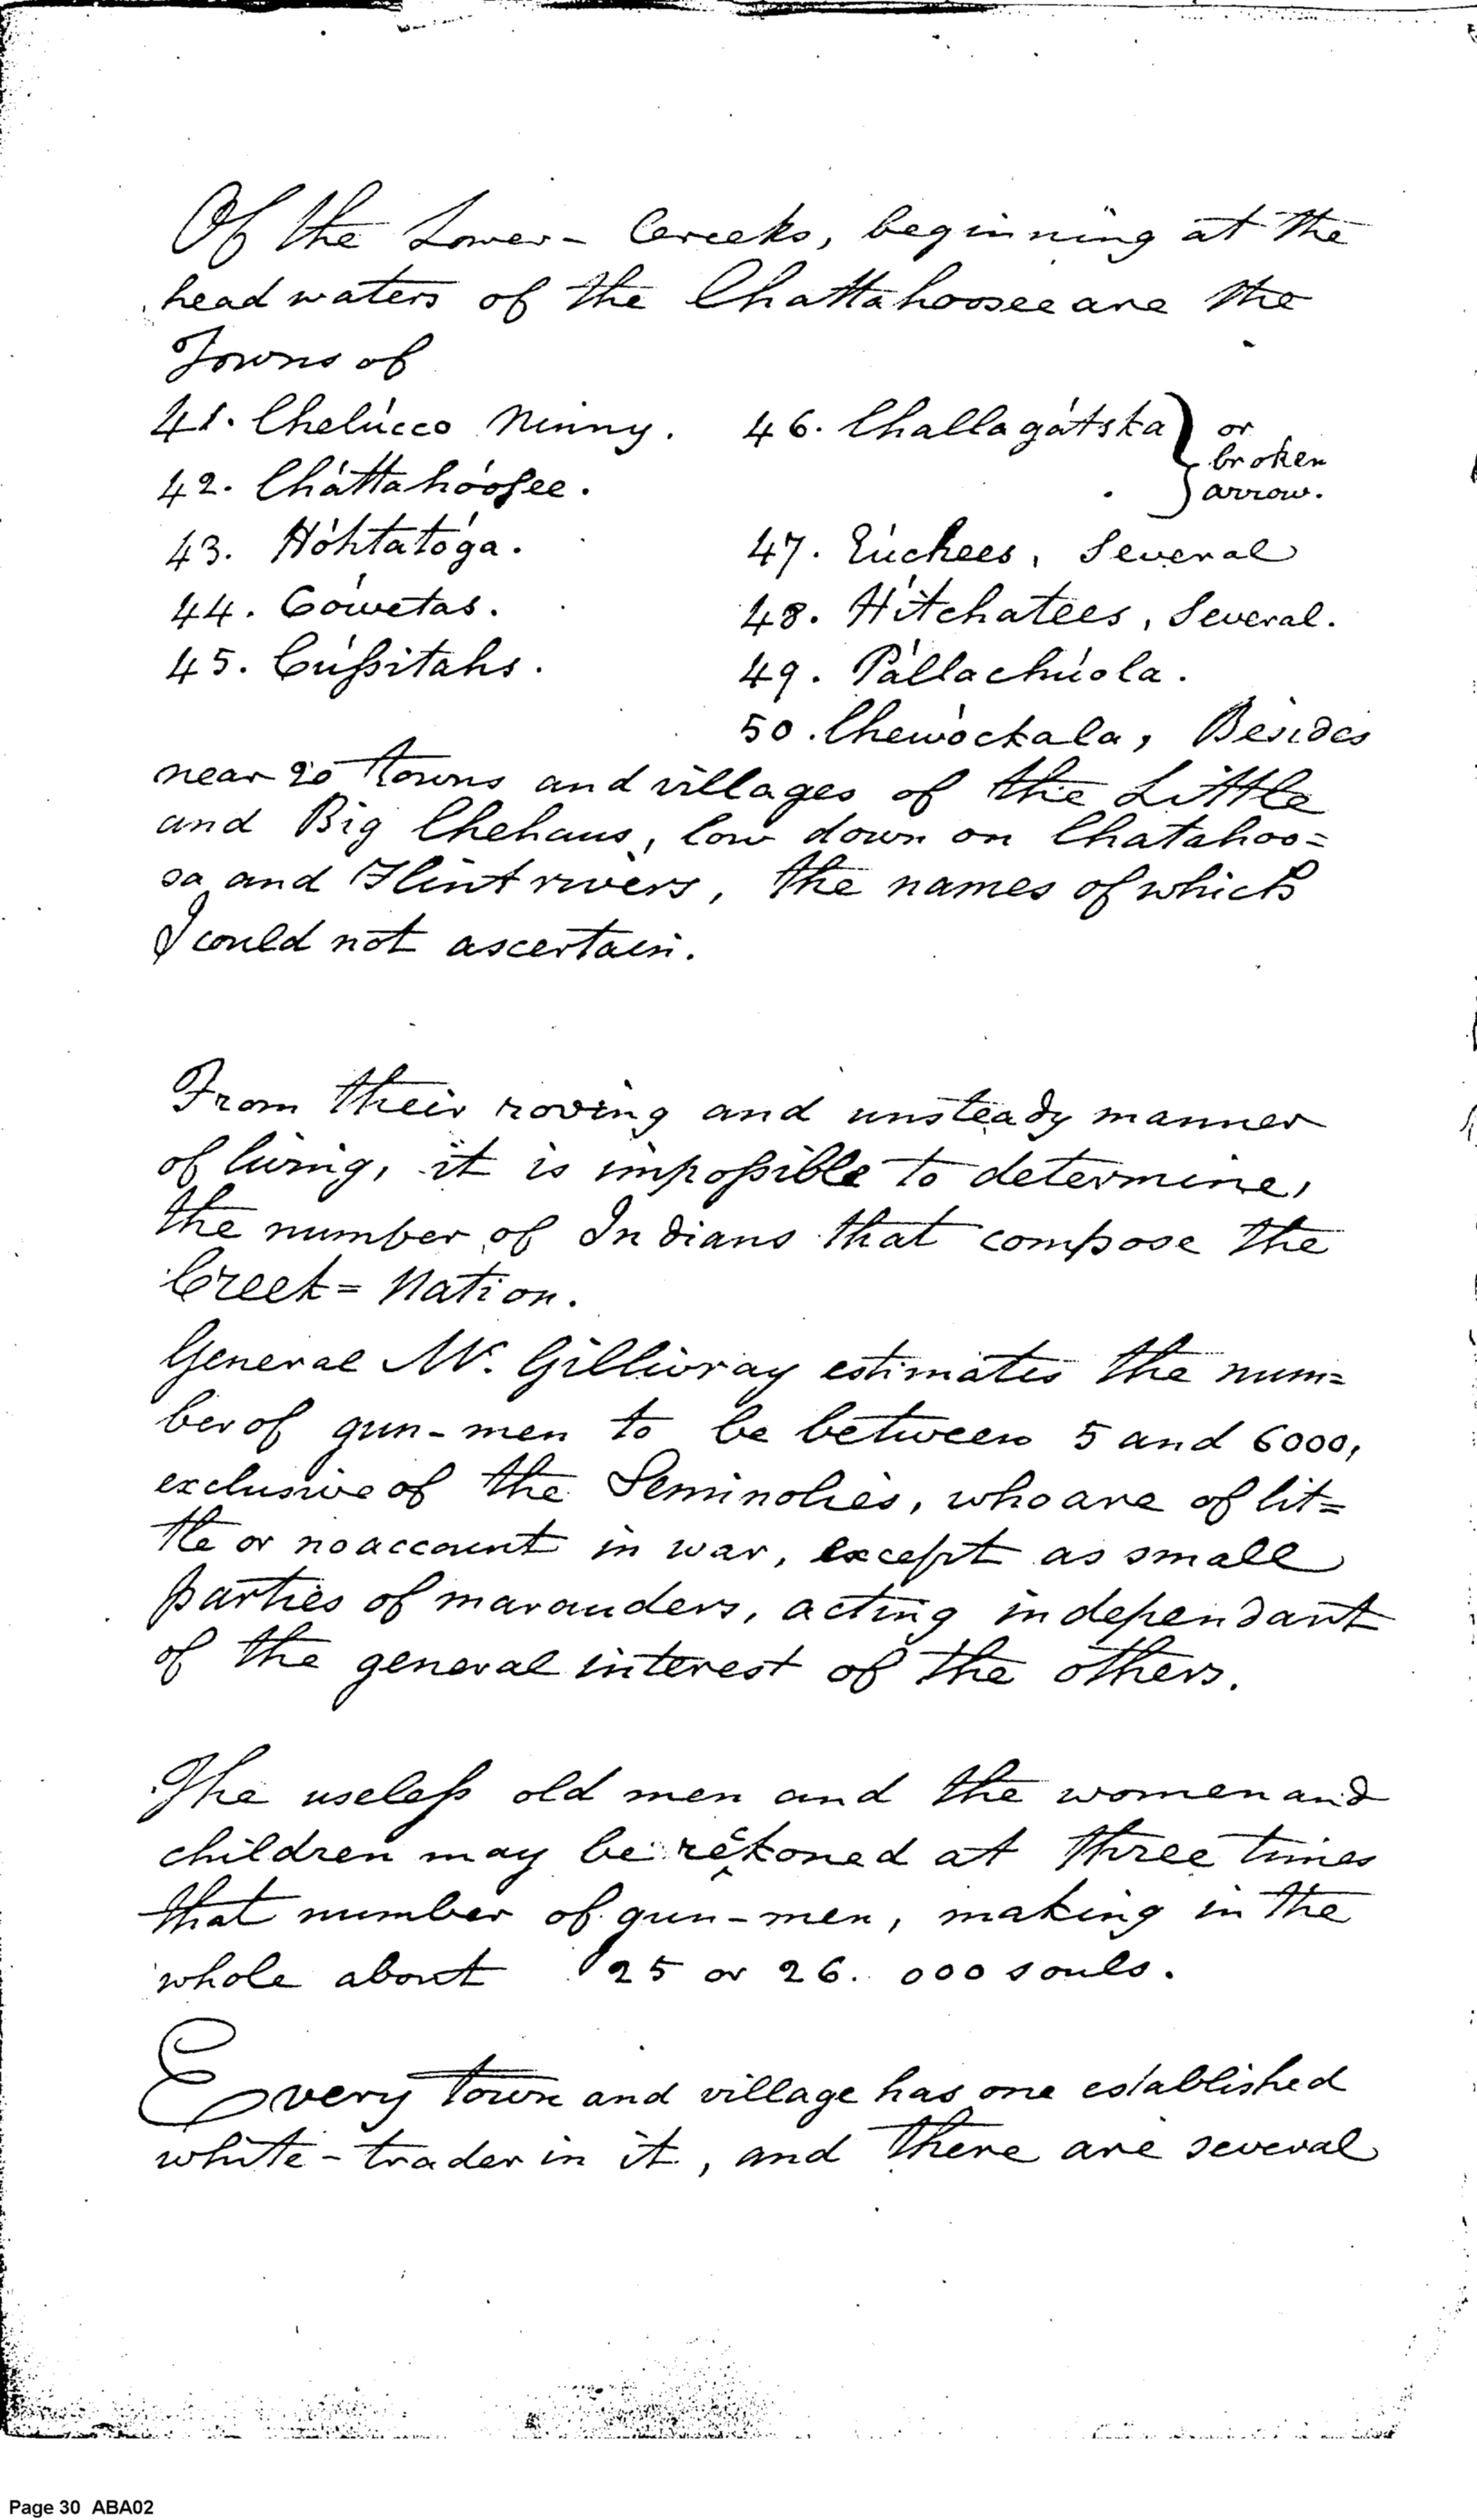 Of the Lower- Creeks, beginning at the
head waters of the Chattahoosee are the
Towns of
41. Chelúcco Ninny.
42. Cháttahóosee.
43. Hóhtatóga.
44. Cówetas.
45. Cússitahs.
46. Challagátska } or broken arrow.
47. Eúchees, Several
48. Hítchatees, Several.
49. Pállachúola.
50. Chewóckala, Besides
near 20 towns and villages of the Little
and Big Chehaus, low down on Chatahoo=
sa and Flint rivers, the names of which
I could not ascertain.
From their roving and unsteady manner
of living, it is impossible to determine,
the number of Indians that compose the
Creek= Nation.
General Mc. Gillivray estimates the num=
ber of gun-men to be between 5 and 6000,
exclusive of the Seminolies, who are of lit=
tle or no account in war, except as small
parties of marauders, acting independant
of the general interest of the others.
The useless old men and the women and
children may be reckoned at three times
that number of gun-men, making in the
whole about 25 or 26. 000 souls.
Every town and village has one established
white-trader in it, and there are several
Page 30 ABA02